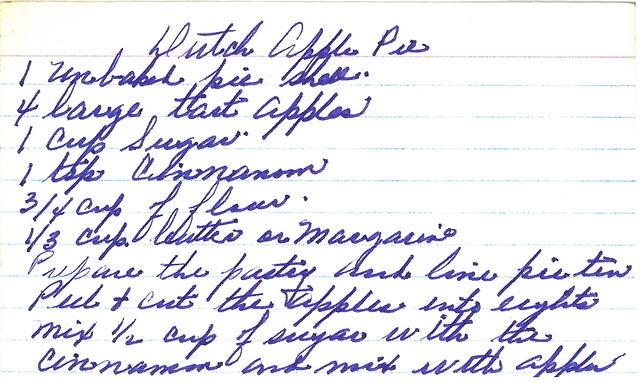 Dutch Apple Pie
1 Unbaked pie shell.
4 large tart apples
1 cup Sugar
1 tsp Cinnamom
3/4 cup of flour.
1/3 cup butter or Margarine
Prepare the pastry and line pie tin
Peel + cut the apples into eights
mix 1/2 cup of sugar with the
Cinnamon and mix with apples